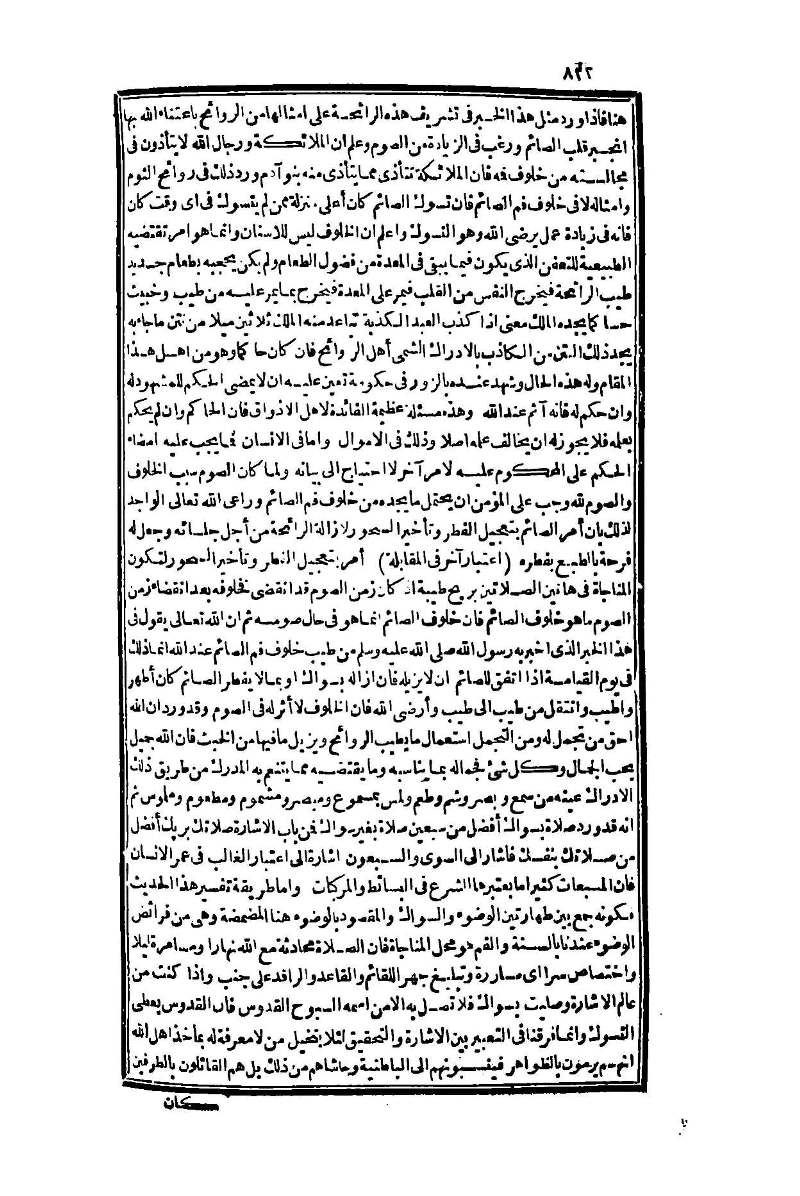 ٨٢٢
هنا فاذا ورد مثل هذا الخبر فى تشريف هذه الرائحة على امثالها من الروائح باعتناء الله بها
انجبر قلب الصائم ورغب فى الزيادة من الصوم وعلم ان الملائكة ورجال الله لا يتأذون فى
مجالسته من خلوف فه فان الملائكة تتأذى مما يتأذى منه بنو آدم وورد ذلك فى روائح الثوم
وامثاله لا فى خلوف فم الصائم فان تسوك الصائم كان أعلى منزلة ممن لم يتسوك فى اى وقت كان
فانه فى زيادة عمل يرضى الله وهو التسوك واعلم ان الخلوف ليس للاسنان وانما هو امر تقتضيه
الطبيعة للتعفن الذى يكون فيما يبقى فى المعدة من فضول الطعام ولم يكن يحجبه بطعام جديد
طيب الرائحة فيخرج النفس من القلب فيمر على المعدة فيخرج بما يمر عليه من طيب وخبيث
حسا كما يجده الملك معنى اذا كذب العبد الكذبة تباعد منه الملك ثلاثين ميلا من نتن ما جاء به
يجد ذلك النتن من الكاذب بالادراك الشمى أهل الروائح فان كان حاكما وهو من اهل هذا
المقام وله هذه الحال وشهد عنده بالزور فى حكومة تعين عليه ان لا يمضى الحكم للمشهود له
وان حكم له فانه آثم عند الله وهذه مسئلة عظيمة الفائدة لاهل الاذواق فان الحاكم وان لم يحكم
بعلمه فلا يجوز له ان يخالف علمه اصلا وذلك فى الاموال واما فى الانسان فما يجب عليه امضاء
الحكم على المحكوم عليه لامر آخر لا احتياج الى بيانه ولما كان الصوم سبب الخلوف
والصوم لله وجب على المؤمن ان يحتمل ما يجده من خلوف فم الصائم وراعى الله تعالى الواجد
لذلك بان أمر الصائم بتعجيل الفطر وتأخير السحور لازالة الرائحة من أجل جلسائه وجعل له
فرحة بالطبع بفطره (اعتبار آخر فى المقابلة) أمر بتعجيل الفطر وتأخير السحور لتكون
المناجاة فى هاتين الصلاتين بريح طيبة اذ كان زمن الصوم قد انقضى فخلوفه بعد انقضاء زمن
الصوم ما هو خلوف الصائم فان خلوف الصائم انما هو فى حال صومه ثم ان الله تعالى يقول فى
هذا الخبر الذى اخبر به رسول الله صلى الله عليه وسلم من طيب خلوف فم الصائم عند الله انما ذلك
فى يوم القيامة اذا اتفق للصائم ان لا يزيله فان ازاله بسواك او بما لا يفطر الصائم كان أطهر
واطيب وانتقل من طيب الى طيب وأرضى الله فان الخلوف لا أثر له فى الصوم وقد ورد ان الله
احق من تجمل له ومن التجمل استعمال ما يطيب الروائح ويزيل ما فيها من الخبث فان الله جميل
يحب الجمال وكل شئ فجماله بما يناسبه وما يقتضيه مما يتنعم به المدرك من طريق ذلك
الادراك عينه من سمع وبصر وشم وطعم ولمس بمسموع ومبصر ومشموم ومطعوم وملموس ثم
انه قد ورد صلاة بسواك أفضل من سبعين صلاة بغير سواك فمن باب الاشارة صلاتك بربك أفضل
من صلاتك بنفسك فأشار الى السوى والسبعون اشارة الى اعتبار الغالب فى عمر الانسان
فان المسبعات كثيرا ما يعتبرها الشرع فى البسائط والمركبات واما طريقة تفسير هذا الحديث
فكونه جمع بين طهارتين الوضوء والسواك والمقصود بالوضوء هنا المضمضة وهى من فرائض
الوضوء عندنا بالسنة والفم هو محل المناجاة فان الصلاة محادثة مع الله نهارا ومسامرة ليلا
واختصاص سرا اى مساررة وتبليغ جهر اللقائم والقاعد والراقد على جنب واذا كنت من
عالم الاشارة وصليت بسواك فلا تصل به الا من اسمه السبوح القدوس فان القدوس يعطى
التسوك وانما فرقنا فى التعبير بين الاشارة والتحقيق لئلا يتخيل من لا معرفة له بمآخذ اهل الله
انهم يرمون بالظواهر فينسبونهم الى الباطنية وحاشاهم من ذلك بل هم القائلون بالطرفين
كان